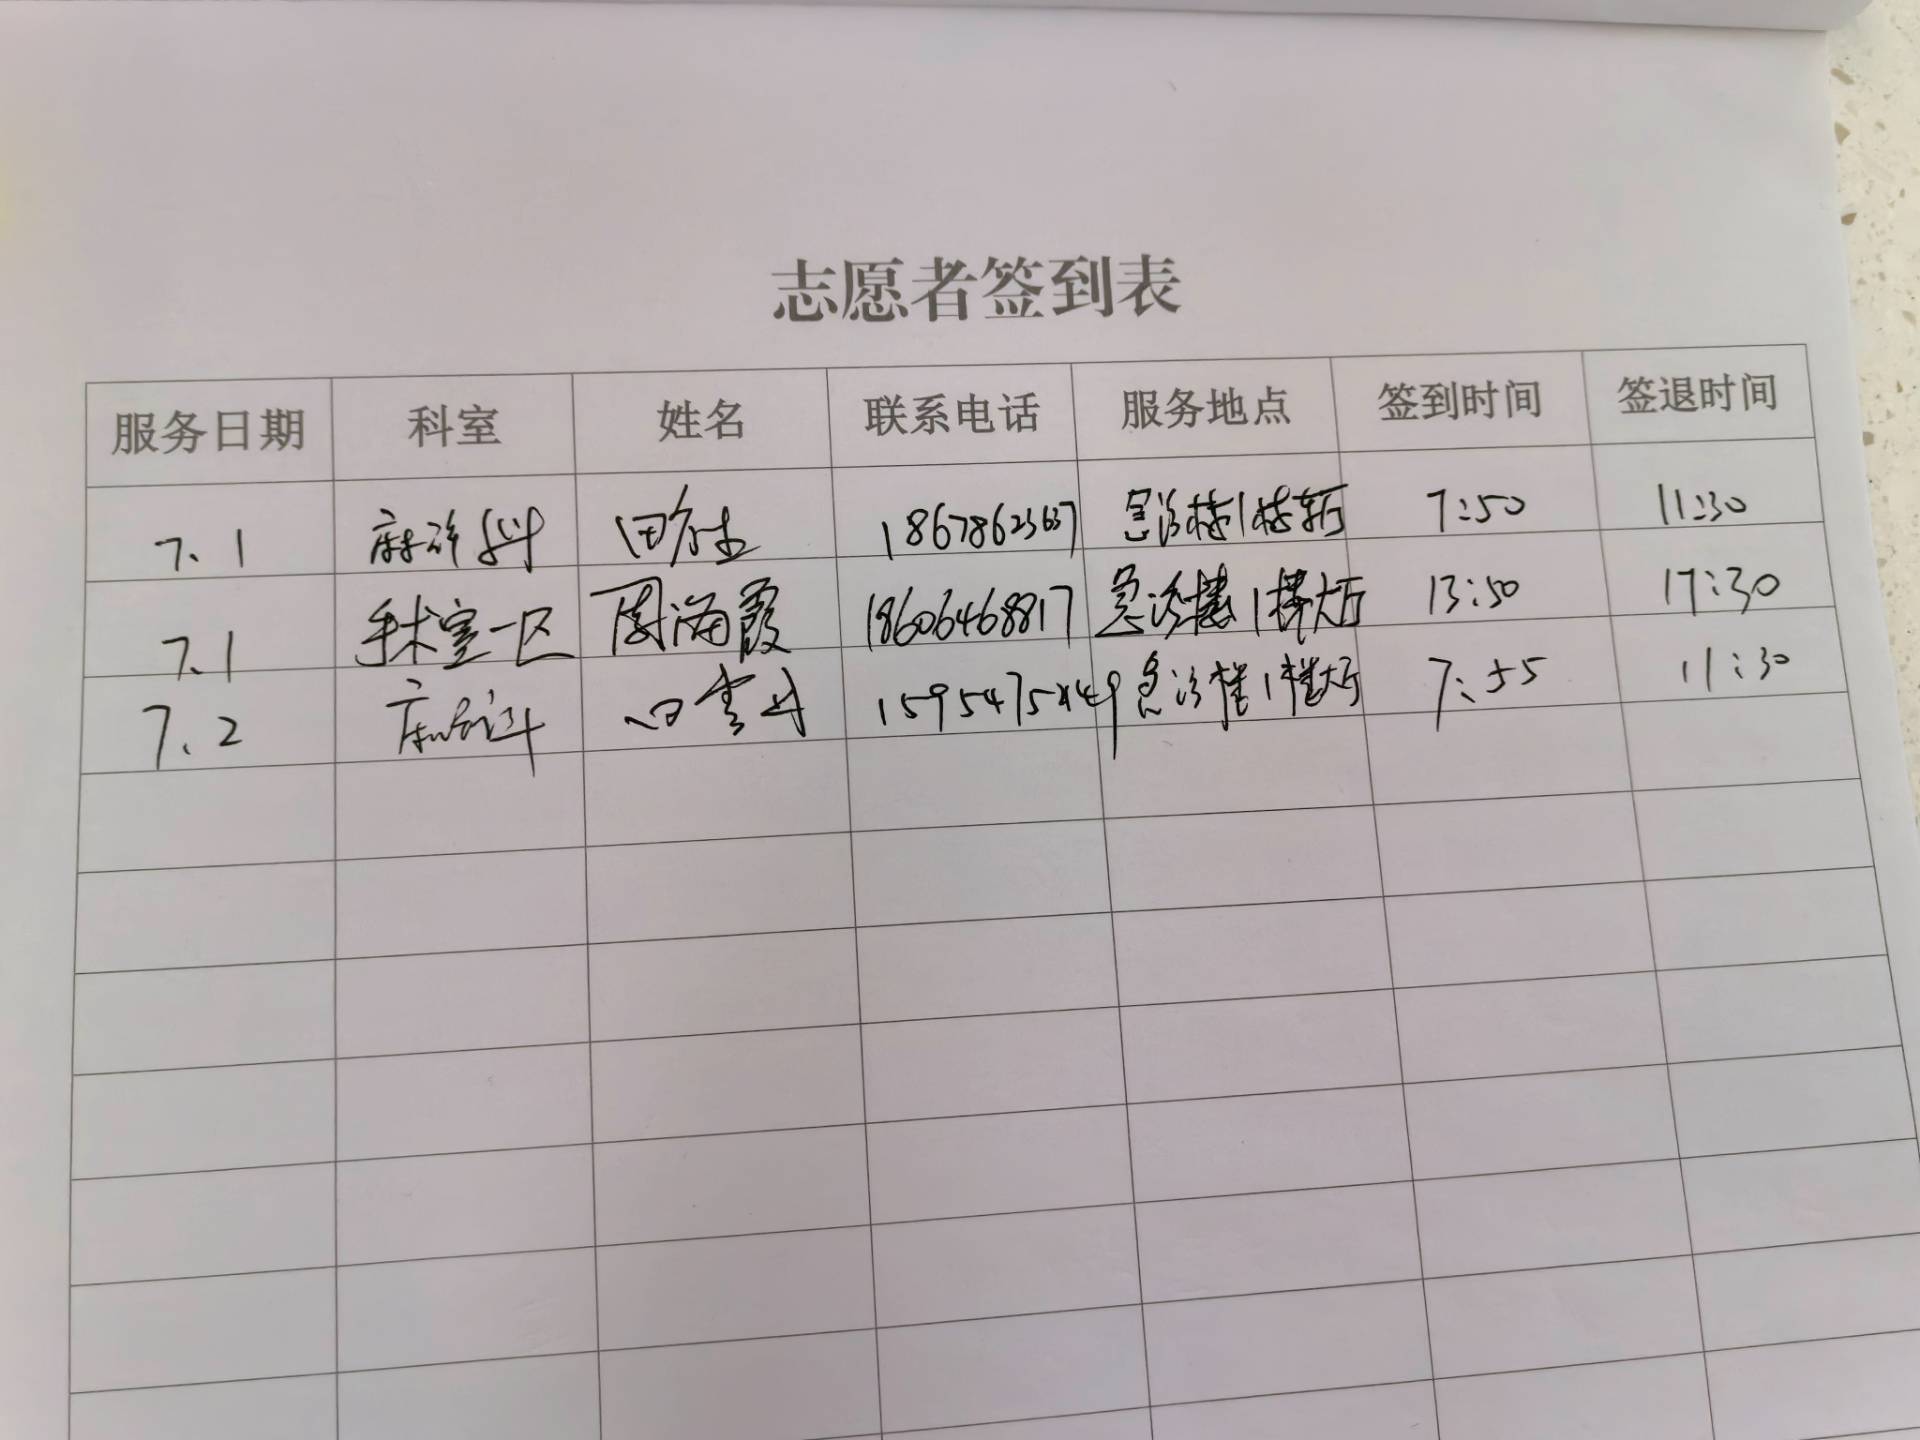 志愿者签到表
服务日期 科室 姓名 联系电话 服务地点 签到时间 签退时间
7.1 麻醉科 田 18678623637 急诊楼1楼大厅 7:50 11:30
7.1 手术室一区 周海霞 18606468817 急诊楼1楼大厅 13:50 17:30
7.2 麻醉科 急诊楼1楼大厅 7:55 11:30